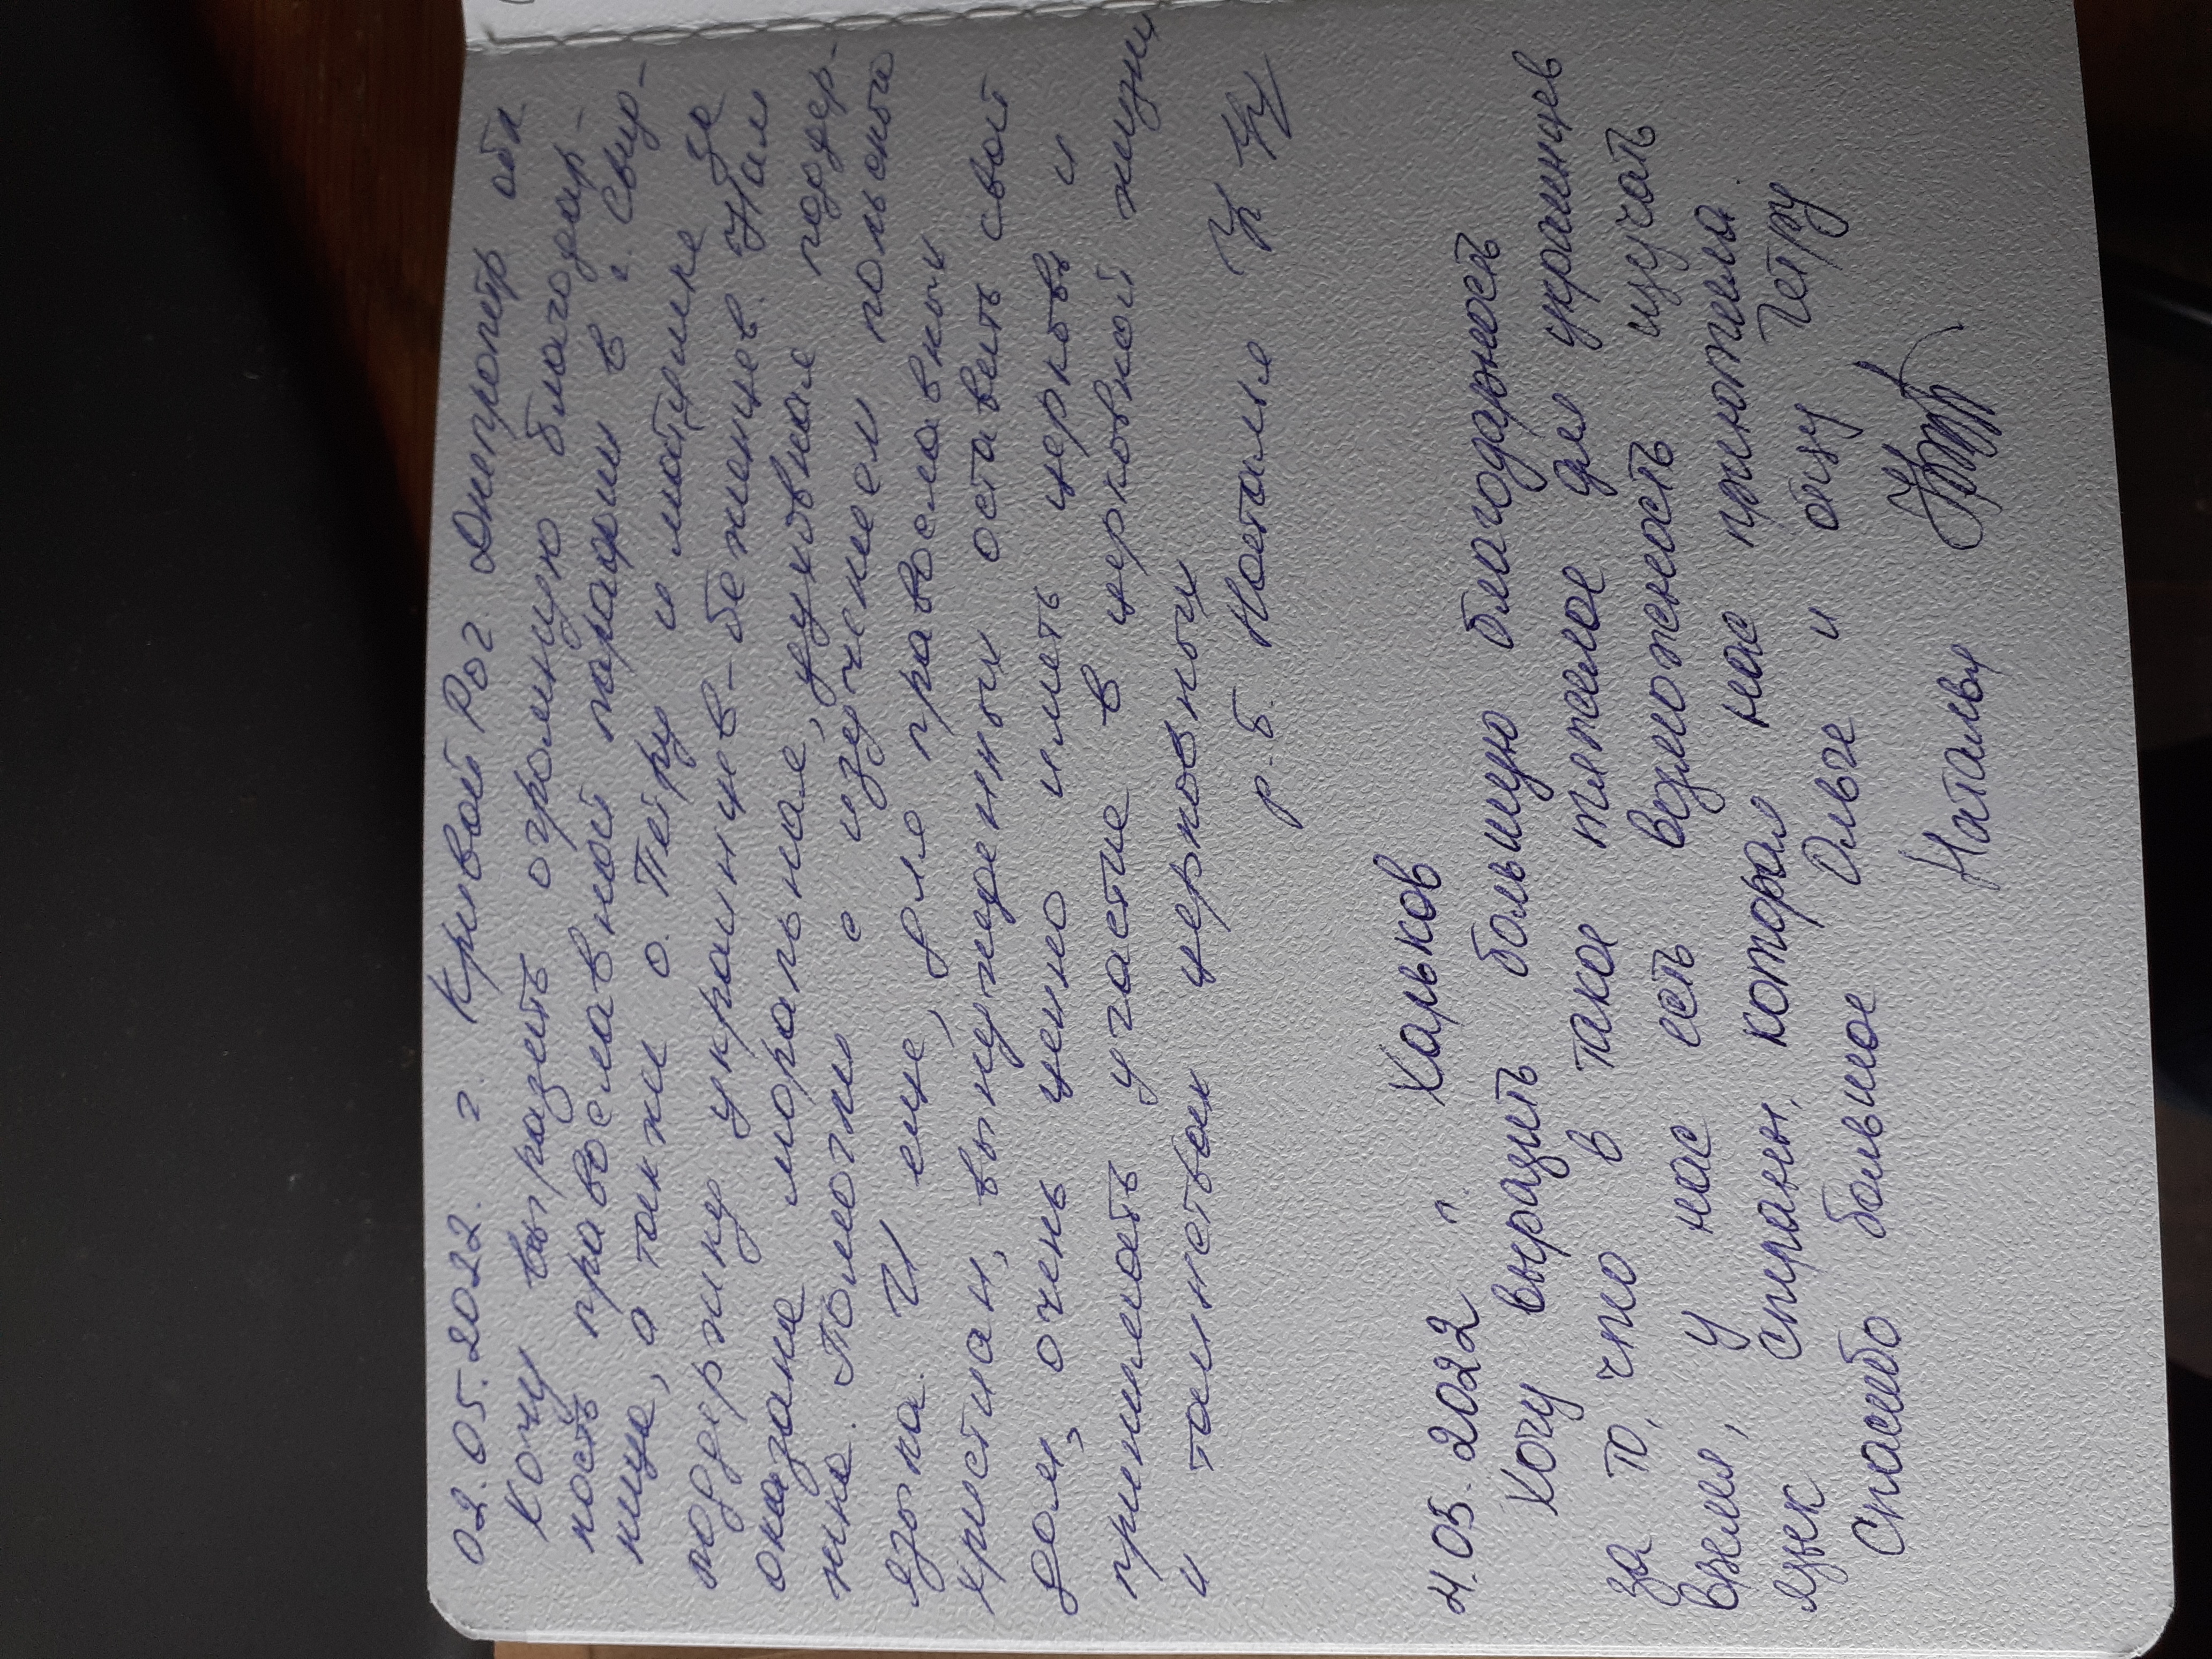 02.05.2022. г. Кривой Рог Днепропетр обл
Хочу выразить огромную благодар-
ность православной парафии в г. Свид-
нице, а также о. Пётру и матушке
поддержку украинцев-беженцев. Нам за
оказана моральная, духовная поддер-
жка. Помогли с изучением польского
языка. И еще, для православных
христиан, вынужденных оставить свой
дом, очень ценно иметь церковь и
принимать участие в церковной жизни
и таинствах церковных
р. Б. Наталия
4.05.2022 г. Харьков
Хочу выразить большую благодарность
за то, что в такое тяжелое для украинцев
время, у нас есть возможность изучать
язык страны, которая нас приютила.
Спасибо большое Ольге и отцу Петру
Наталья